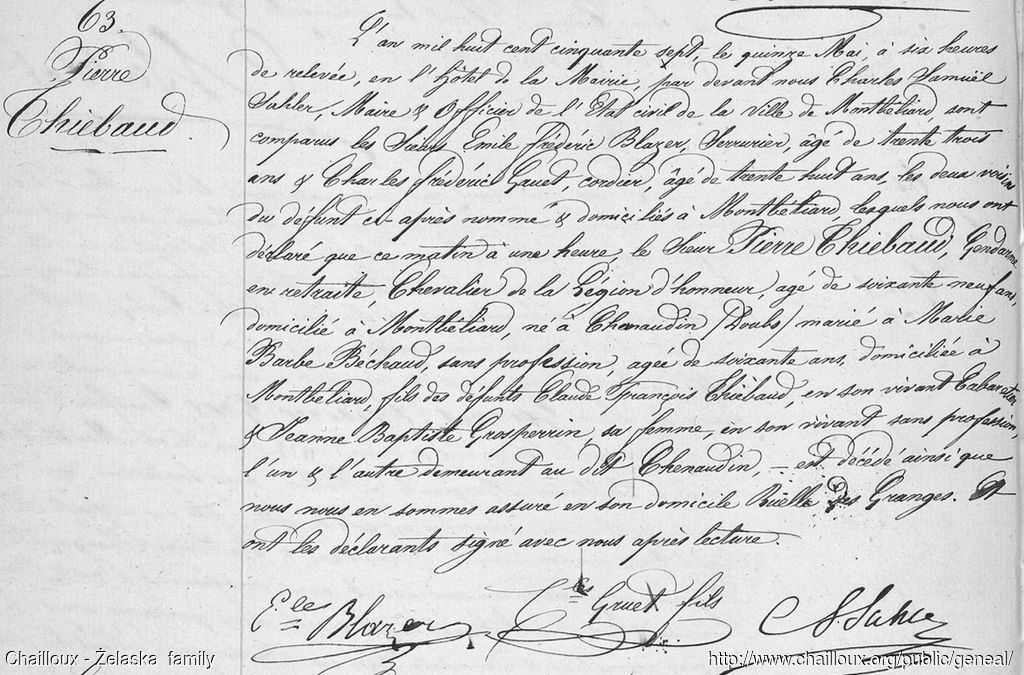 63.
Pierre
Thiébaud.
L'an mil huit cent cinquante sept, le quinze Mai, à six heures
de relevée, en l'hôtel de la Mairie, par devant nous Charles Samuël
Sahler, Maire & Officier de l'Etat civil de la Ville de Montbéliard, sont
comparus les Sieurs Emile Frédéric Blazer, Serrurier, âgé de trente trois
ans & Charles fréderic Gruet, cordier, âgé de trente huit ans, les deux voisins
du défunt ci-après nommé & domiciliés à Montbéliard, lesquels nous ont
déclaré que ce matin à une heure, le Sieur Pierre Thiébaud, Gendarme
en retraite, Chevalier de la Légion d'honneur, agé de soixante neuf ans,
domicilié à Montbéliard, né à Chenaudin (Doubs) marié à Marie
Barbe Bechaud, sans profession, agée de soixante ans, domiciliée à
Montbéliard, fils des défunts Claude François Thiébaud, en son vivant Cabaretier
& Jeanne Baptiste Grosperrin, sa femme, en son vivant sans profession,
l'un & l'autre demeurant au dit Chenaudin, — est décédé ainsi que
nous nous en sommes assuré en son domicile Ruelle des Granges. Et
ont les déclarants signé avec nous après lecture.
E.le Blazer
C.les Gruet fils
C S. Sahler
Chailloux - Żelaska family
http://www.chailloux.org/public/geneal/